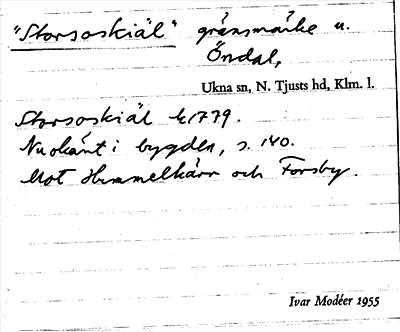 "Storsoskiäl" gränsmärke u.
Öndal,
Ukna sn, N. Tjusts hd, Klm. l.
Storsoskiäl k 1779.
Nu okänt i bygden, s. 140.
Mot Hemmelkärr och Forsby.
Ivar Modéer 1955